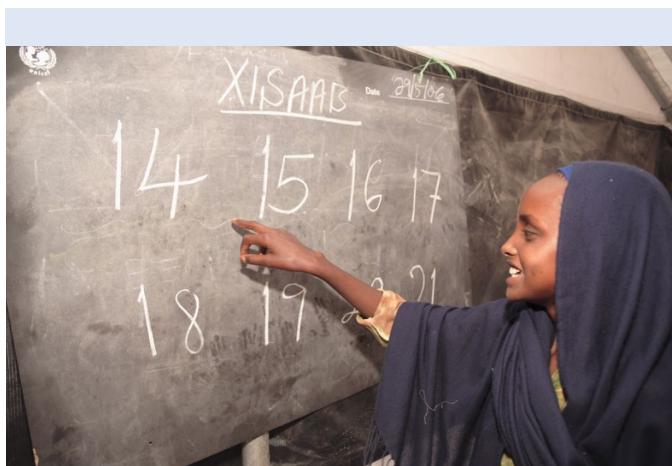 unicef
XISAAB
Date 29/5/06
14 15 16 17
18 19 20 21